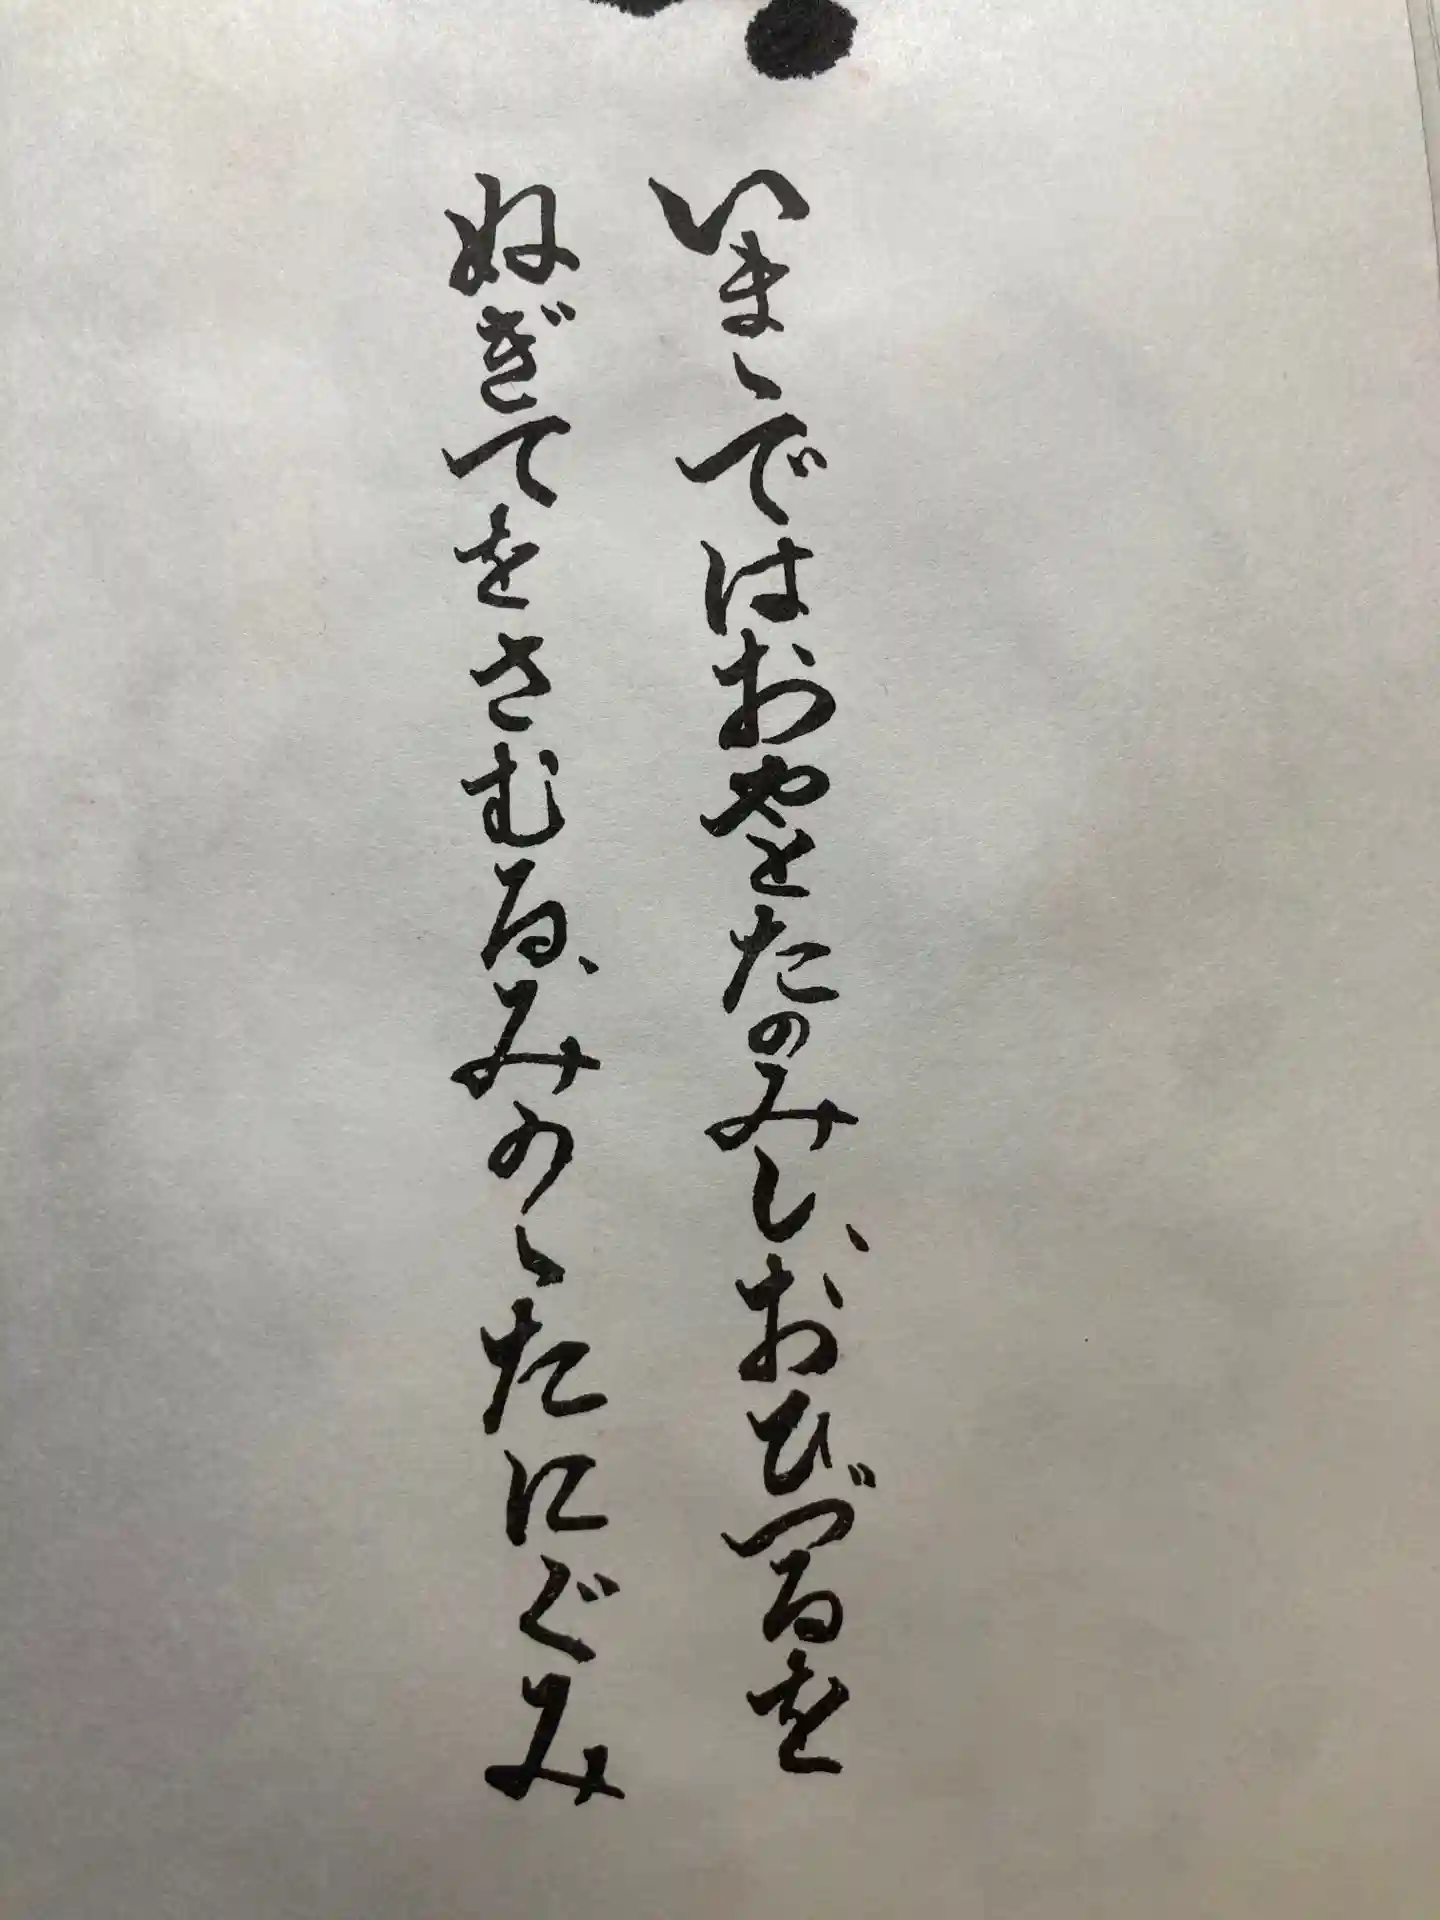 いまゝではおやとたのみし、おひづるを
ぬぎてをさむる、みのゝたにぐみ